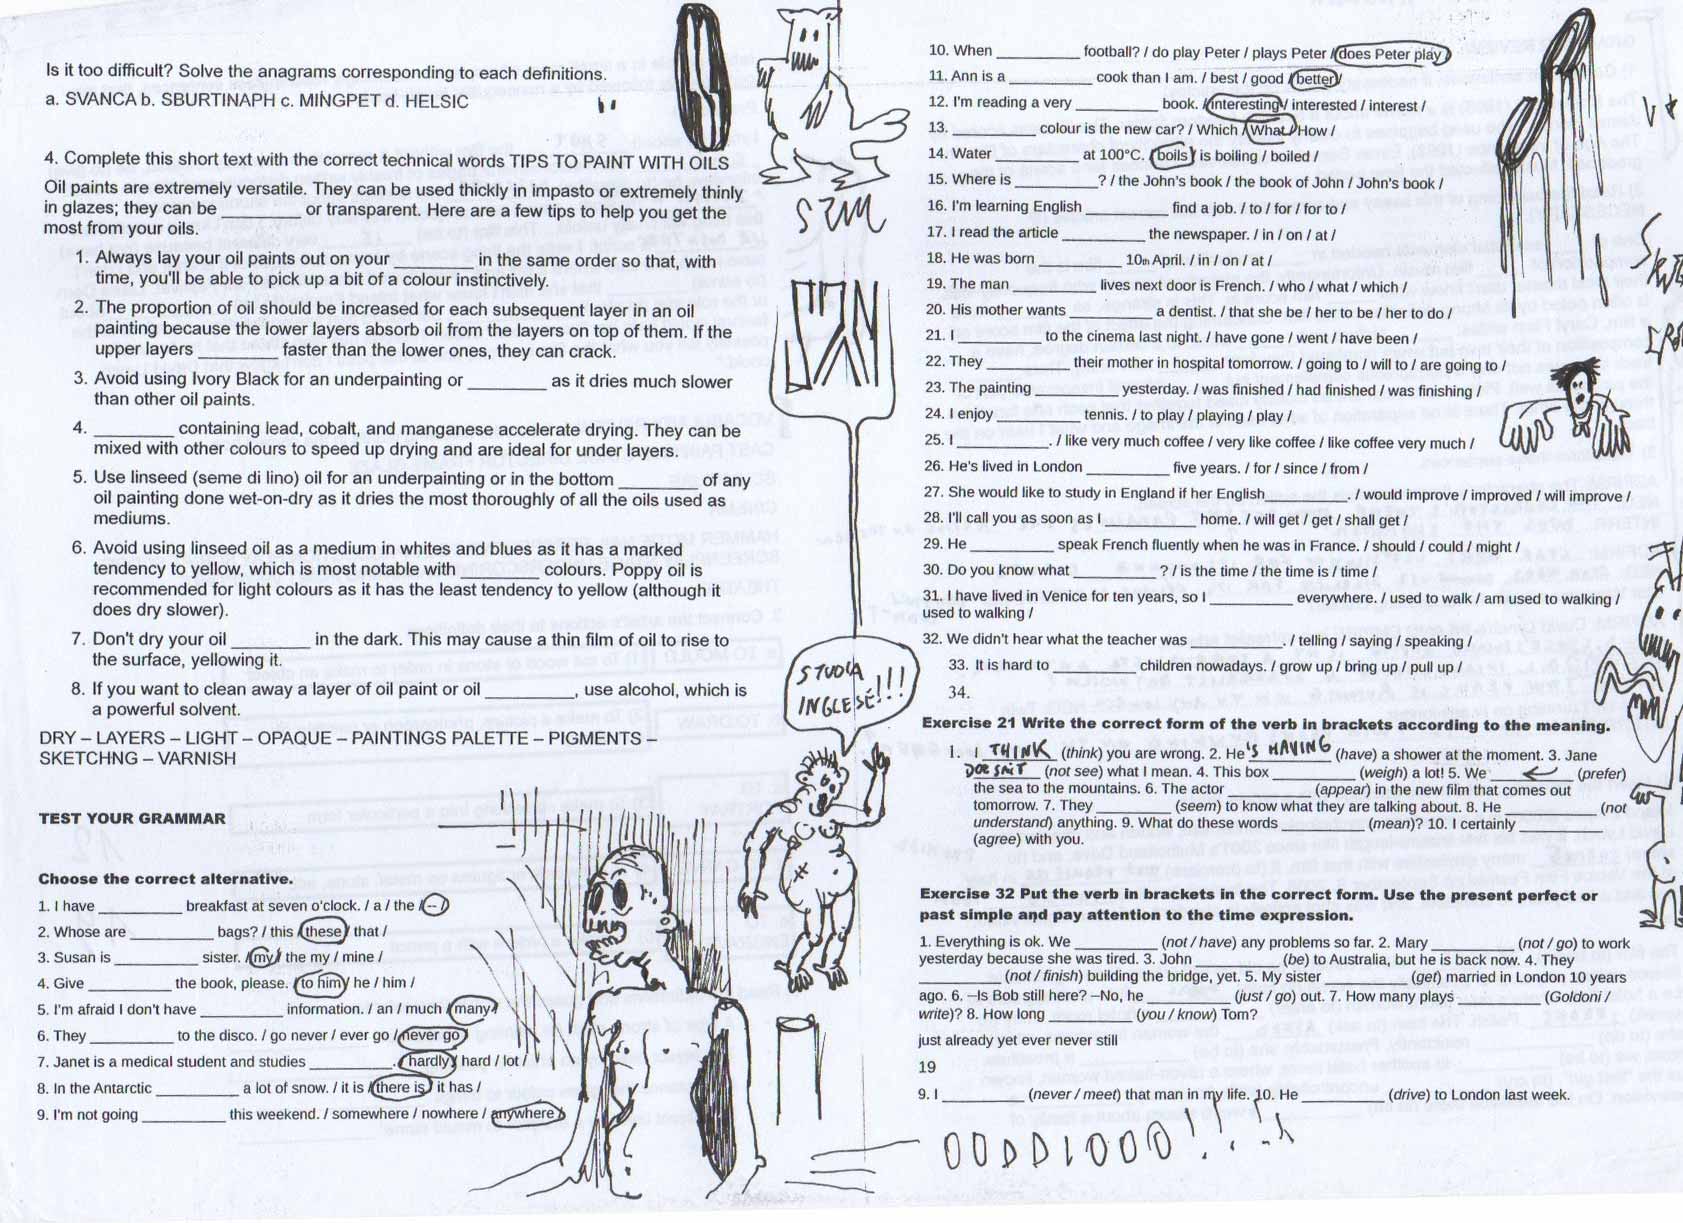 Is it too difficult? Solve the anagrams corresponding to each definitions.
a. SVANCA b. SBURTINAPH c. MINGPET d. HELSIC
4. Complete this short text with the correct technical words TIPS TO PAINT WITH OILS
Oil paints are extremely versatile. They can be used thickly in impasto or extremely thinly
in glazes; they can be _________ or transparent. Here are a few tips to help you get the
most from your oils.
1. Always lay your oil paints out on your _________ in the same order so that, with
time, you'll be able to pick up a bit of a colour instinctively.
2. The proportion of oil should be increased for each subsequent layer in an oil
painting because the lower layers absorb oil from the layers on top of them. If the
upper layers _________ faster than the lower ones, they can crack.
3. Avoid using Ivory Black for an underpainting or _________ as it dries much slower
than other oil paints.
4. _________ containing lead, cobalt, and manganese accelerate drying. They can be
mixed with other colours to speed up drying and are ideal for under layers.
5. Use linseed (seme di lino) oil for an underpainting or in the bottom _________ of any
oil painting done wet-on-dry as it dries the most thoroughly of all the oils used as
mediums.
6. Avoid using linseed oil as a medium in whites and blues as it has a marked
tendency to yellow, which is most notable with _________ colours. Poppy oil is
recommended for light colours as it has the least tendency to yellow (although it
does dry slower).
7. Don't dry your oil _________ in the dark. This may cause a thin film of oil to rise to
the surface, yellowing it.
8. If you want to clean away a layer of oil paint or oil __________, use alcohol, which is
a powerful solvent.
DRY – LAYERS – LIGHT – OPAQUE – PAINTINGS PALETTE – PIGMENTS –
SKETCHNG – VARNISH
STUDIA
INGLESE!!!
TEST YOUR GRAMMAR
Choose the correct alternative.
1. I have __________ breakfast at seven o'clock. / a / the / -- /
2. Whose are __________ bags? / this / these / that /
3. Susan is __________ sister. / my / the my / mine /
4. Give __________ the book, please. / to him / he / him /
5. I'm afraid I don't have __________ information. / an / much / many /
6. They __________ to the disco. / go never / ever go / never go /
7. Janet is a medical student and studies __________. / hardly / hard / lot /
8. In the Antarctic __________ a lot of snow. / it is / there is / it has /
9. I'm not going __________ this weekend. / somewhere / nowhere / anywhere /
10. When __________ football? / do play Peter / plays Peter / does Peter play /
11. Ann is a __________ cook than I am. / best / good / better /
12. I'm reading a very __________ book. / interesting / interested / interest /
13. __________ colour is the new car? / Which / What / How /
14. Water __________ at 100°C. / boils / is boiling / boiled /
15. Where is __________? / the John's book / the book of John / John's book /
16. I'm learning English __________ find a job. / to / for / for to /
17. I read the article __________ the newspaper. / in / on / at /
18. He was born __________ 10th April. / in / on / at /
19. The man __________ lives next door is French. / who / what / which /
20. His mother wants __________ a dentist. / that she be / her to be / her to do /
21. I __________ to the cinema last night. / have gone / went / have been /
22. They __________ their mother in hospital tomorrow. / going to / will to / are going to /
23. The painting __________ yesterday. / was finished / had finished / was finishing /
24. I enjoy __________ tennis. / to play / playing / play /
25. I ___________. / like very much coffee / very like coffee / like coffee very much /
26. He's lived in London __________ five years. / for / since / from /
27. She would like to study in England if her English__________. / would improve / improved / will improve /
28. I'll call you as soon as I ___________ home. / will get / get / shall get /
29. He __________ speak French fluently when he was in France. / should / could / might /
30. Do you know what __________ ? / is the time / the time is / time /
31. I have lived in Venice for ten years, so I __________ everywhere. / used to walk / am used to walking /
used to walking /
32. We didn't hear what the teacher was ___________. / telling / saying / speaking /
33. It is hard to __________ children nowadays. / grow up / bring up / pull up /
34.
Exercise 21 Write the correct form of the verb in brackets according to the meaning.
1. I THINK (think) you are wrong. 2. He 'S HAVING (have) a shower at the moment. 3. Jane
DOESN'T (not see) what I mean. 4. This box __________ (weigh) a lot! 5. We __________ (prefer)
the sea to the mountains. 6. The actor __________ (appear) in the new film that comes out
tomorrow. 7. They _________ (seem) to know what they are talking about. 8. He ___________ (not
understand) anything. 9. What do these words __________ (mean)? 10. I certainly __________
(agree) with you.
Exercise 32 Put the verb in brackets in the correct form. Use the present perfect or
past simple and pay attention to the time expression.
1. Everything is ok. We __________ (not / have) any problems so far. 2. Mary __________ (not / go) to work
yesterday because she was tired. 3. John __________ (be) to Australia, but he is back now. 4. They
__________ (not / finish) building the bridge, yet. 5. My sister __________ (get) married in London 10 years
ago. 6. –Is Bob still here? –No, he __________ (just / go) out. 7. How many plays __________ (Goldoni /
write)? 8. How long __________ (you / know) Tom?
just already yet ever never still
19
9. I __________ (never / meet) that man in my life. 10. He __________ (drive) to London last week.
OODDIOOO!!!